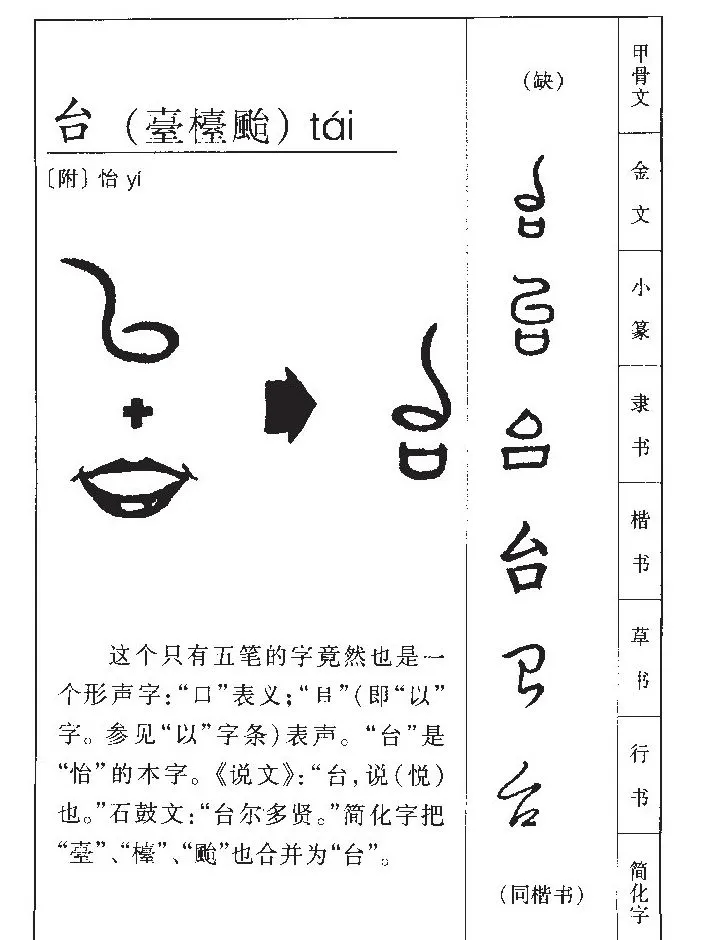 台（臺檯颱）tái
〔附〕怡 yí
这个只有五笔的字竟然也是一
个形声字：“口”表义；“㠯”（即“以”
字。参见“以”字条）表声。“台”是
“怡”的本字。《说文》：“台，说（悦）
也。”石鼓文：“台尔多贤。”简化字把
“臺”、“檯”、“颱”也合并为“台”。
（缺）
台
台
台
台
台
台
（同楷书）
甲骨文
金文
小篆
隶书
楷书
草书
行书
简化字